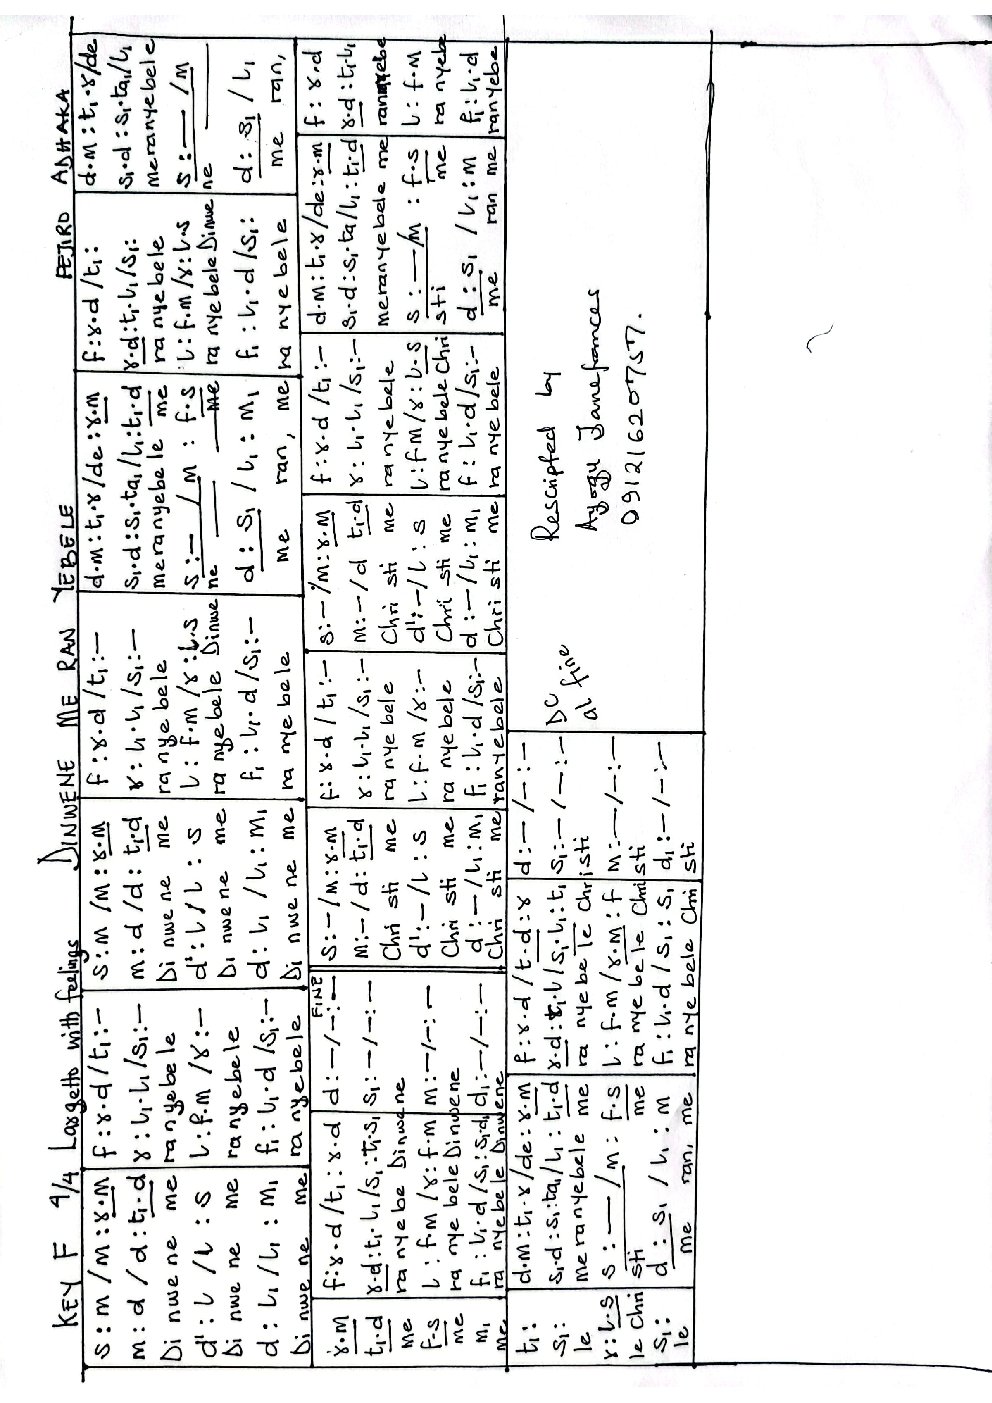 KEY F 4/4 Largetto with feelings DINWENE ME RAN YEBELE PEJIRO ADHAKA
s : m / m : r.m | f : r.d / t₁ : – | s : m / m : r.m | f : r.d / t₁ : – | d.m : t₁.r / de : r.m | f : r.d / t₁ : | d.m : t₁.r / de
m : d / d : t₁.d | r : l₁.l₁ / s₁ : – | m : d / d : t₁.d | r : l₁.l₁ / s₁ : – | s₁.d : s₁.ta₁ / l₁ : t₁.d | r.d : t₁.l₁ / s₁ : | s₁.d : s₁.ta₁ / l₁
Di nwe ne me | ranyebele | Di nwe ne me | ra nyebele | meranyebele me | ra nyebele | meranyebele
d' : l / l : s | l : f.m / r : – | d' : l / l : s | l : f.m / r : l.s | s : – / m : f.s | l : f.m / r : l.s | s : – / m
Di nwe ne me | ranyebele | Di nwe ne me | ra nyebele Dinwe | ne me | ra nyebele Dinwe | ne
d : l₁ / l₁ : m₁ | f₁ : l₁.d / s₁ : – | d : l₁ / l₁ : m₁ | f₁ : l₁.d / s₁ : – | d : s₁ / l₁ : m₁ | f₁ : l₁.d / s₁ : | d : s₁ / l₁
Di nwe ne me | ra nyebele | Di nwe ne me | ra nyebele | me ran, me | ra nyebele | me ran,
FINE
r.m | f : r.d / t₁ : r.d | d : – / – : – | s : – / m : r.m | f : r.d / t₁ : – | s : – / m : r.m | f : r.d / t₁ : – | d.m : t₁.r / de : r.m | f : r.d
t₁.d | r.d : t₁.l₁ / s₁ : t₁.s₁ | s₁ : – / – : – | m : – / d : t₁.d | r : l₁.l₁ / s₁ : – | m : – / d t₁.d | r : l₁.l₁ / s₁ : – | s₁.d : s₁.ta / l₁ : t₁.d | r.d : t₁.l₁
me | ra nyebe Dinwene | Chri sti me | ra nyebele | Chri sti me | ra nyebele | meranyebele me | ranyebe
f.s | l : f.m / r : f.m | m : – / – : – | d' : – / l : s | l : f.m / r : – | d' : – / l : s | l : f.m / r : l.s | s : – / m : f.s | l : f.m
me | ra nye bele Dinwene | Chri sti me | ra nyebele | Chri sti me | ranyebele Chri | sti me | ra nyebe
m₁ | f₁ : l₁.d / s₁ : s₁.d₁ | d₁ : – / – : – | d : – / l₁ : m₁ | f₁ : l₁.d / s₁ : – | d : – / l₁ : m₁ | f : l₁.d / s₁ : – | d : s₁ / l₁ : m | f₁ : l₁.d
me | ra nyebele Dinwene | Chri sti me | ranyebele | Chri sti me | ra nyebele | me ran me | ranyebe
t₁ : | d.m : t₁.r / de : r.m | f : r.d / t.d : r | d : – / – : –
s₁ : | s₁.d : s₁.ta / l₁ : t₁.d | r.d : t₁.l / s₁.l₁ : t₁ | s₁ : – / – : –
le | me ranyebele me | ra nyebe le Chri | sti
r : l.s | s : – / m : f.s | l : f.m / r.m : f | m : – / – : –
le Chri | sti me | ra nyebe le Chri | sti
s₁ : | d : s₁ / l₁ : m | f₁ : l₁.d / s₁ : s₁ | d₁ : – / – : –
le | me ran, me | ra nye bele Chri | sti
DC
al fine
Rescripted by
Ayogu Janefrances
09121620757.